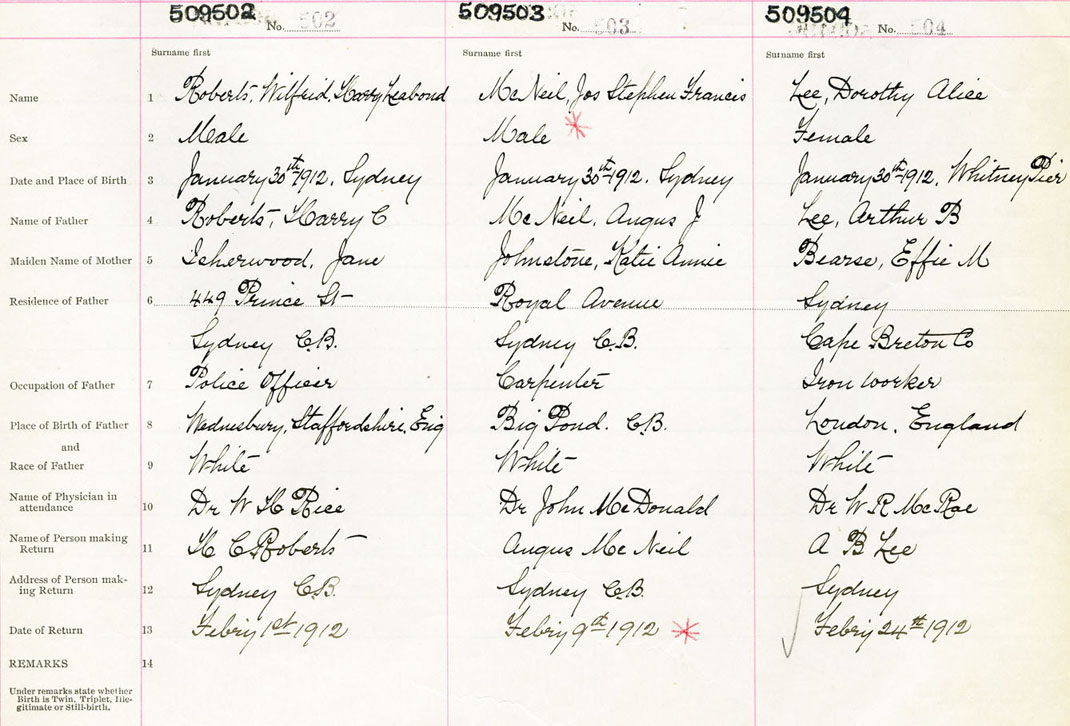 509502 509503 509504
No. 502 No. 503 No. 504
Surname first Surname first Surname first
Name 1 Roberts, Wilfrid, Harry Leabond McNeil, Jos Stephen Francis Lee, Dorothy Alice
Sex 2 Male Male Female
Date and Place of Birth 3 January 30th 1912. Sydney January 30th 1912. Sydney January 30th 1912, Whitney Pier
Name of Father 4 Roberts, Harry C McNeil, Angus J Lee, Arthur B
Maiden Name of Mother 5 Isherwood, Jane Johnstone, Katie Annie Bearse, Effie M
Residence of Father 6 449 Prince St Royal Avenue Sydney
Sydney C.B. Sydney C.B. Cape Breton Co
Occupation of Father 7 Police Officer Carpenter Iron worker
Place of Birth of Father 8 Wednesbury, Staffordshire, Eng Big Pond. C.B. London, England
and
Race of Father 9 White White White
Name of Physician in
attendance 10 Dr W H Rice Dr John McDonald Dr W R McRae
Name of Person making
Return 11 H C Roberts Angus McNeil A B Lee
Address of Person mak-
ing Return 12 Sydney C.B. Sydney C.B. Sydney
Date of Return 13 Febry 1st 1912 Febry 9th 1912 Febry 24th 1912
REMARKS 14
Under remarks state whether
Birth is Twin, Triplet, Ille-
gitimate or Still-birth.